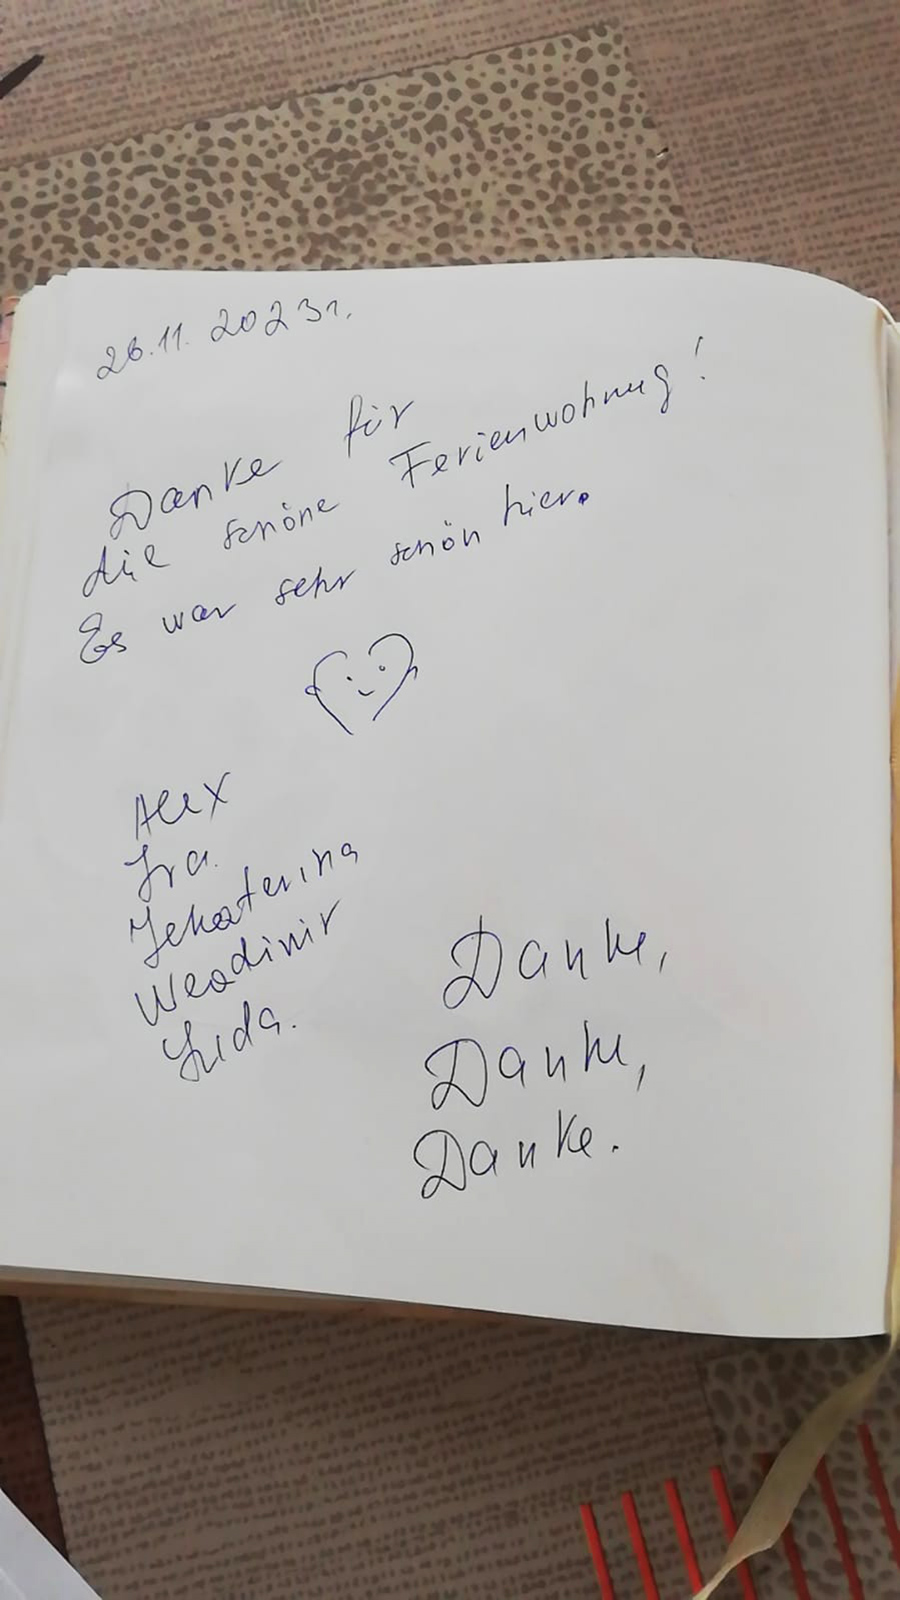 26.11.2023г.
Danke für
die schöne Ferienwohnung!
Es war sehr schön hier.
Alex
Ira.
Jekaterina
Wladimir
Lida.
Danke,
Danke,
Danke.